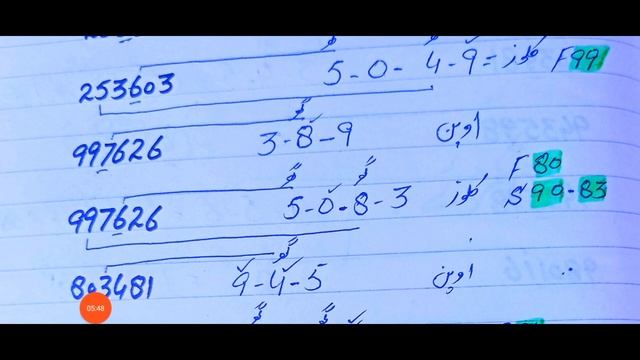 253603 5-0-4-9= کلوز F 99
997626 3-8-9 اوپن
F 80
997626 5-0-8-3 کلوز S 90-83
803481 9-4-5 اوپن
05:48